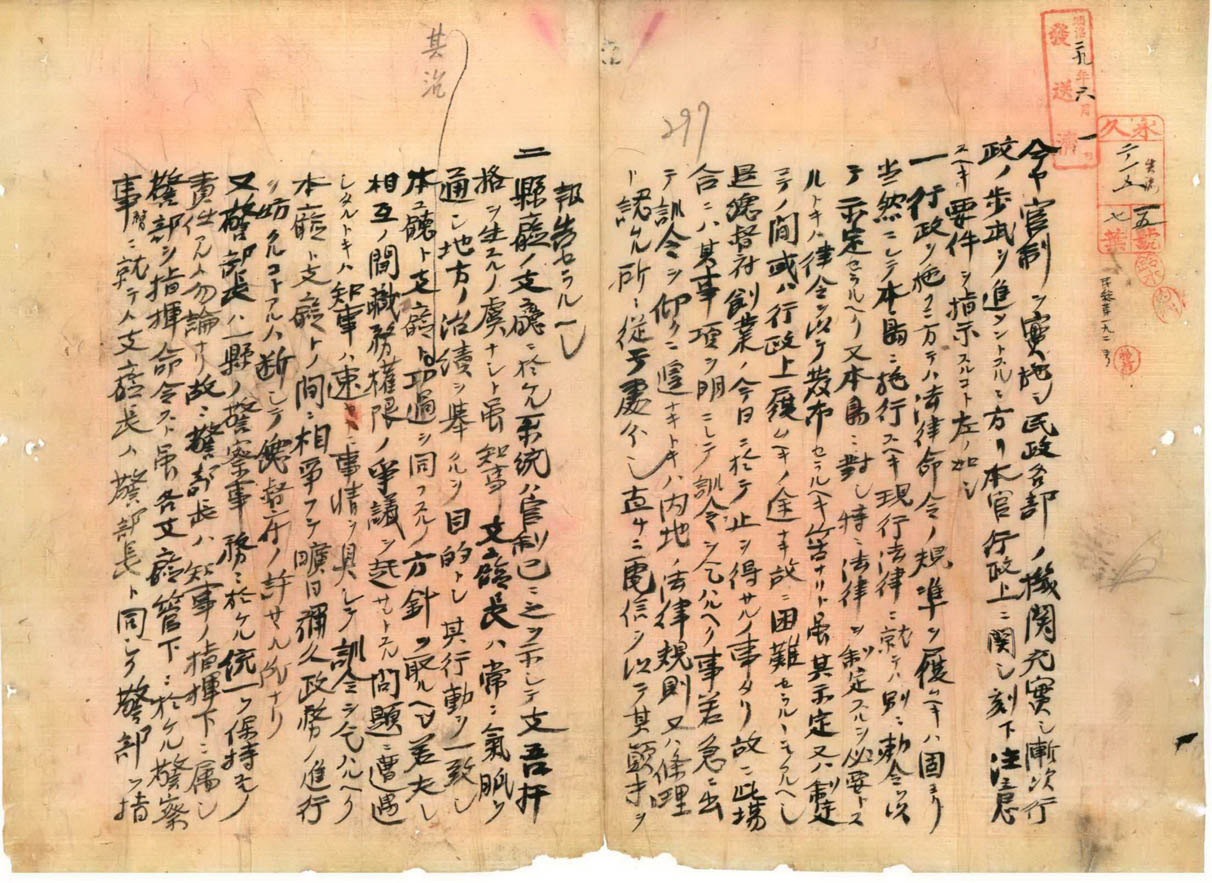 明治廿九年六月一日
發送濟
永久
一五號
七葉
297
今ヤ官制ヲ實施シ民政各部ノ機関充實シ漸次行
政ノ歩武ヲ進メントスルニ方リ本官行政上ニ関シ刻下注意
スヘキ要件ヲ指示スルコト左ノ如シ
一行政ヲ施クニ方テハ法律命令ノ規準ヲ履ムヘキハ固ヨリ
当然ニシテ本島ニ施行スヘキ現行法律ニ就テハ別ニ勅令ヲ以
テ示定セラルヘク又本島ニ對シ特ニ法律ヲ制定スルヲ必要トス
ルトキハ律令ヲ以テ發布セラルヘキ筈ナリト雖其示定又ハ制定
マテノ間或ハ行政上履ムヘキノ途ナキ故ニ困難セラルヽコアルヘシ
是總督府創業ノ今日ニ於テ止ヲ得サルノ事タリ故ニ此場
合ニハ其事項ヲ明ニシテ訓令ヲ乞ハルヘク事若急ニ出
テ訓令ヲ仰クニ遑ナキトキハ内地ノ法律規則又ハ條理
ト認ムル所ニ従テ處分シ直チニ電信ヲ以テ其顛末ヲ
報告セラルヘシ
二縣廳ノ支廳ニ於ケル系統ハ官制已ニ之ヲ示シテ支吾扞
格ヲ生スルノ虞ナシト雖知事支廳長ハ常ニ氣脈ヲ
通シ地方ノ治績ヲ擧クルヲ目的トシ其行動ヲ一致シ
本廳ト支廳ト功過ヲ同フスルノ方針ヲ取ルヘシ若夫レ
相互ノ間職務權限ノ爭議ヲ起サントスル問題ニ遭遇
シタルトキハ知事ハ速ニ事情ヲ具シテ訓令ヲ乞ハルヘク
本廳ト支廳トノ間ニ相爭フテ曠日彌久政務ノ進行
ヲ妨クルコトアルハ断シテ總督府ノ許サヽル所ナリ
又警部長ハ一縣ノ警察事務ニ於ケル統一ヲ保持スルノ
責任アルハ勿論ナリ故ニ警部長ハ知事ノ指揮下ニ属シ
警部ヲ指揮命令スト雖各支廳管下ニ於ケル警察
事務ニ就テハ支廳長ハ警部長ト同シク警部ヲ指